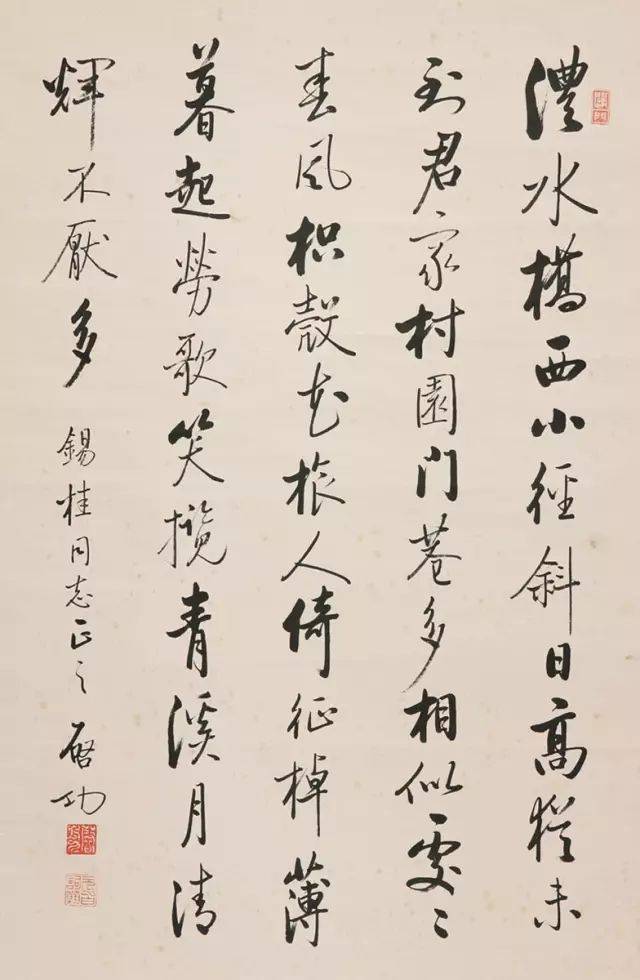 澧水橋西小徑斜日高猶未
到君家村園門巷多相似處〻
春風枳殼花旅人倚征棹薄
暮起勞歌笑攬青溪月清
輝不厭多 錫桂同志正之 啓功